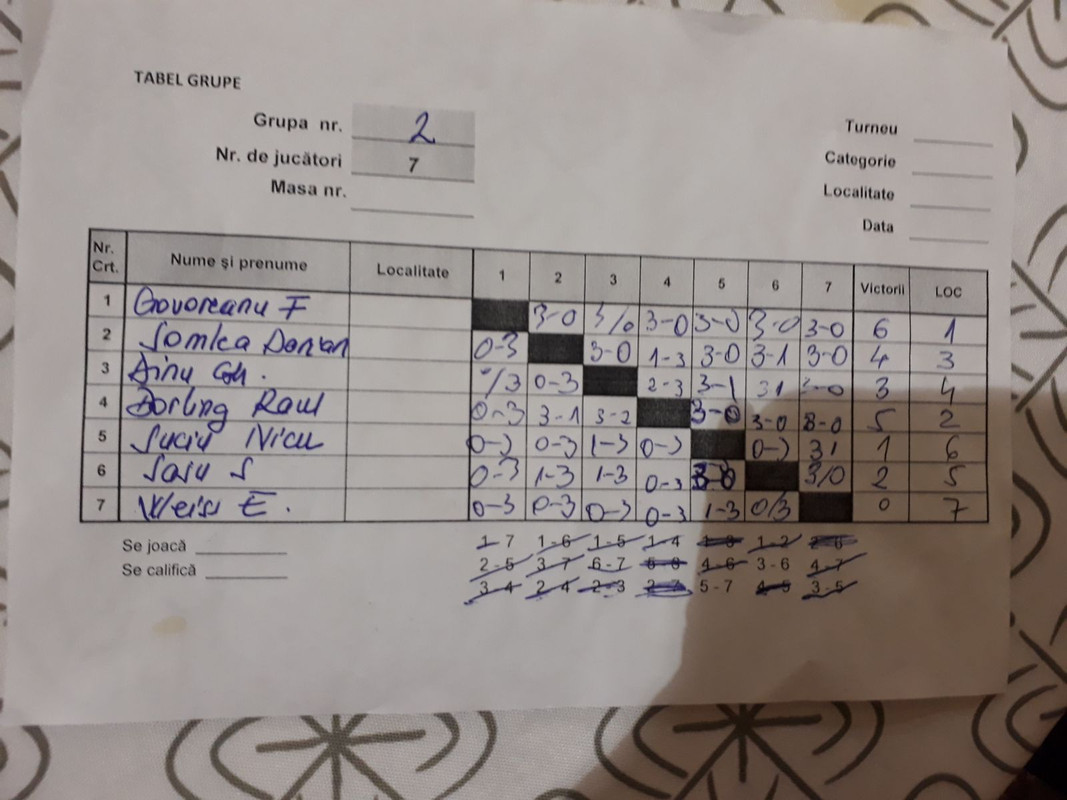 TABEL GRUPE
Grupa nr. 2
Nr. de jucători 7
Masa nr.
Turneu
Categorie
Localitate
Data
Nr. Crt. Nume și prenume Localitate 1 2 3 4 5 6 7 Victorii LOC
1 Govoreanu F 3-0 3/0 3-0 3-0 3-0 3-0 6 1
2 Somlea Dorian 0-3 3-0 1-3 3-0 3-1 3-0 4 3
3 Dinu Gh. 0/3 0-3 2-3 3-1 31 3-0 3 4
4 Borling Raul 0-3 3-1 3-2 3-0 3-0 3-0 5 2
5 Suciu Nicu 0-3 0-3 1-3 0-3 0-3 31 1 6
6 S 0-3 1-3 1-3 0-3 3-0 3/0 2 5
7 Weiss E. 0-3 0-3 0-3 0-3 1-3 0/3 0 7
Se joacă 1-7 1-6 1-5 1-4 1-3 1-2 2-6
Se califică 2-5 3-7 6-7 5-6 4-6 3-6 4-7
3-4 2-4 2-3 2-7 5-7 4-5 3-5